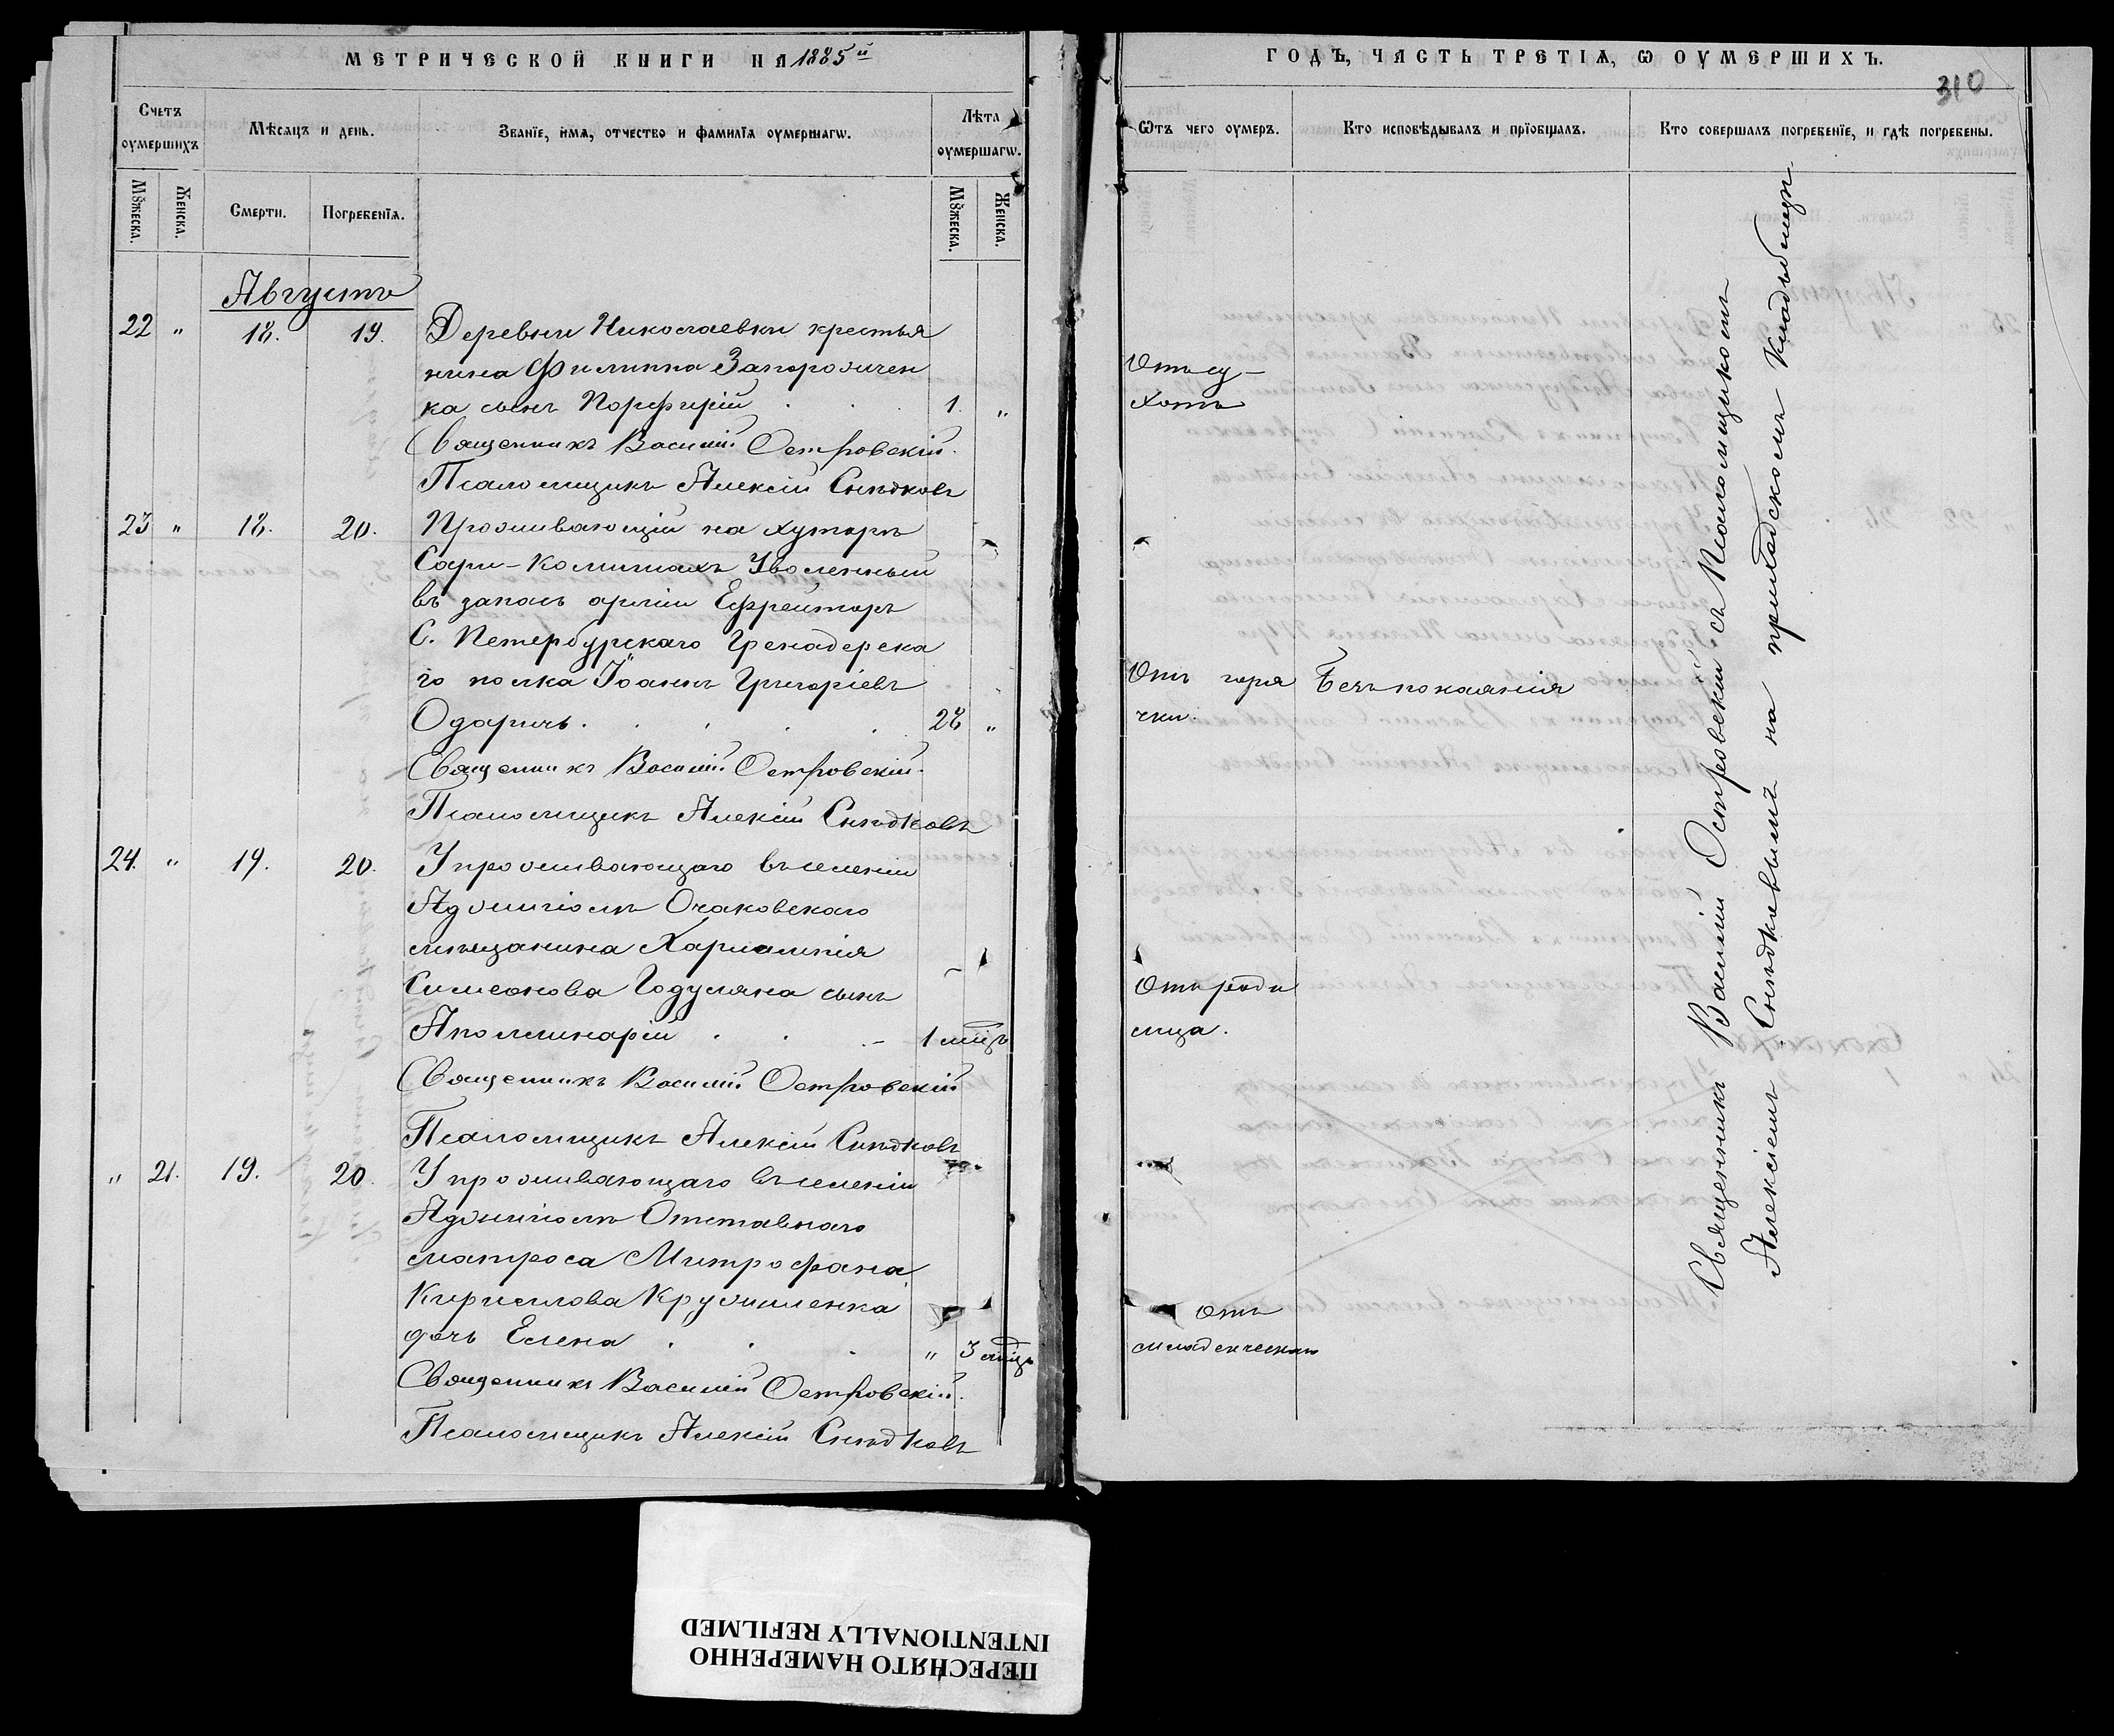 МЕТРИЧЕСКОЙ КНИГИ НА 1885й
Счетъ оумершихъ
Мѣсяцъ и день.
Званїе, имя, отчество и фамилїя оумершагѡ.
Лѣта оумершагѡ.
Мꙋжеска.
Женска.
Смерти.
Погребенїя.
Мꙋжеска.
Женска.
Августъ
22 " 18. 19. Деревни Николаевки крестья
нина Филиппа Запорожчен
ка сынъ Порфирій . . . 1. "
Священникъ Василій Островскій.
Псаломщикъ Алексій Снѣдковъ
23 " 18. 20. Проживающій на хуторѣ
Сари-Камышахъ Уволенный
въ запасъ арміи Ефрейторъ
С. Петербурскаго Гренадерска
го полка Іоаннъ Григоріевъ
Одаричь. . . . . 28 "
Священникъ Василій Островскій.
Псаломщикъ Алексій Снѣдковъ
24. " 19. 20. У проживающаго въ имѣніи
Аджигіолъ Очаковскаго
мѣщанина Харлампія
Симеонова Годуляна сынъ
Аполлинарій . . . 1 мѣцъ
Священникъ Василій Островскій
Псаломщикъ Алексій Снѣдковъ
" 21. 19. 20. У проживающаго въ имѣніи
Аджигіолъ Отставнаго
матроса Митрофана
Кириллова Кружиленка
дочь Елена . . . " 3 мѣц
Священникъ Василій Островскій.
Псаломщикъ Алексій Снѣдковъ
ГОДЪ, ЧАСТЬ ТРЕТІЯ, Ѡ ОУМЕРШИХЪ.
310
Ѿтъ чего оумеръ.
Кто исповѣдывалъ и прїобщалъ.
Кто совершалъ погребенїе, и гдѣ погребены.
Отъ су-
хотъ
Отъ горя
чки.
Безъ покаянія
Отъ роди
мца.
Отъ
младенческой
Священникъ Василій Островскій съ Псаломщикомъ
Алексіемъ Снѣдковымъ на приходскомъ кладбищѣ
ПЕРЕСНЯТО НАМЕРЕННО
INTENTIONALLY REFILMED